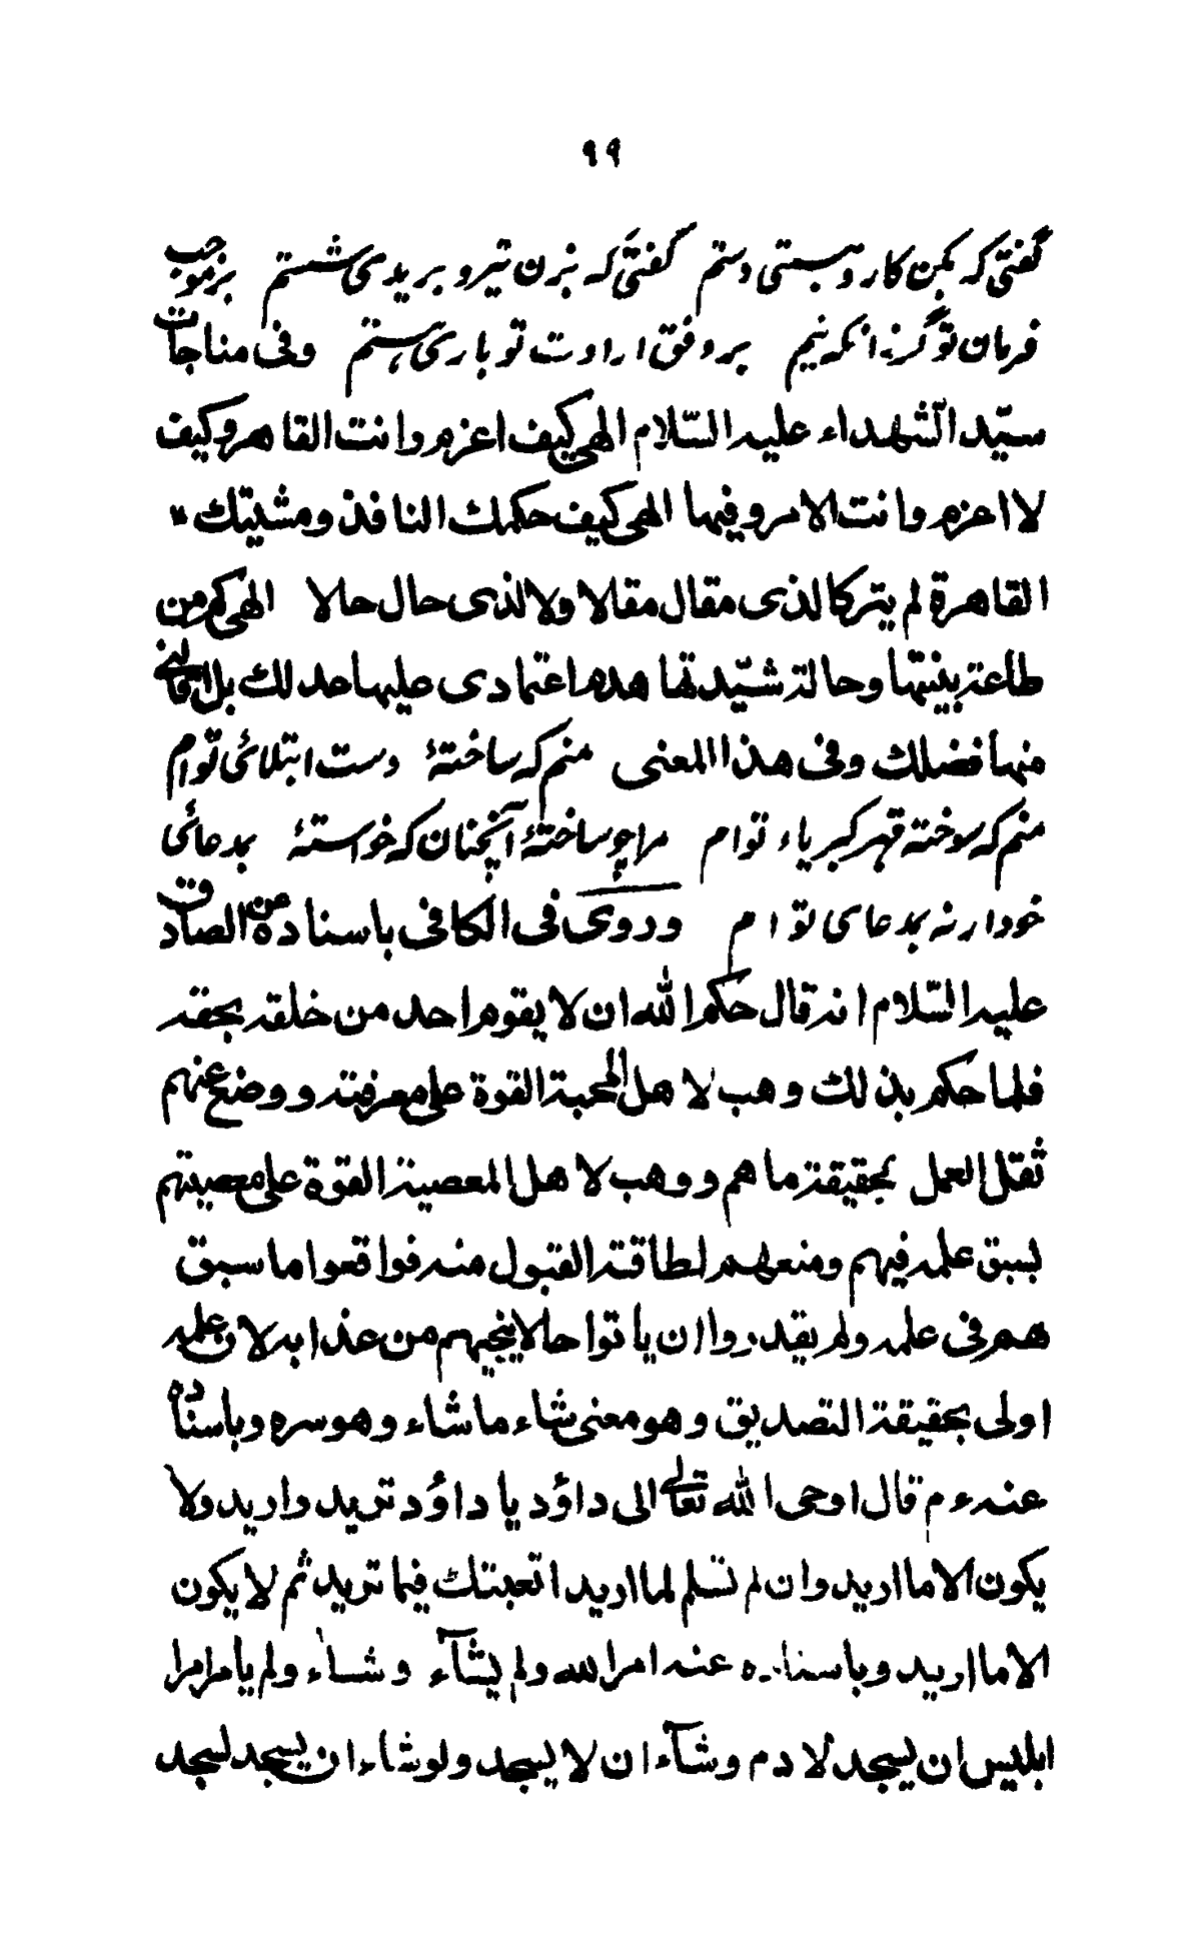 ۹۹
گفتی که بکن کار و ببستی دستم گفتی که بزن تیر و بریدی شستم بر موجب
فرمان تو گر زانکه نیم بر وفق ارادت تو باری هستم وفى مناجات
سيّد الشّهداء عليه السّلام الهى كيف اعزم وانت القاهر وكيف
لا اعزم وانت الامر وفيها الهى كيف حكمك النافذ ومشيتك
القاهرة لم يتركا لذى مقال مقالا ولا لذى حال حالا الهى كم من
طاعة بنيتها وحالة شيّدتها هدم اعتمادى عليها عدلك بل اقالنى
منها فضلك وفى هذا المعنى منم که ساختهٔ دست ابتلائی توام
منم که سوخته قهر کبریاء توام مرا چو ساختهٔ آنچنان که خواستهٔ بدعائی
خود ار نه بدعای توام وروى فى الكافى باسناده عن الصادق
عليه السّلام انه قال حكم الله ان لا يقوم احد من خلقه بحقه
فلما حكم بذلك وهب لاهل المحبة القوة على معرفته ووضع عنهم
ثقل العمل بحقيقة ما هم ووهب لاهل المعصية القوة على معصيتهم
لسبق علمه فيهم ومنعهم لطاقة القبول منه فواقعوا ما سبق
هم فى علمه ولم يقدروا ان ياتوا حالا ينجيهم من عذابه لان علمه
اولى بحقيقة التصديق وهو معنى شاء ما شاء وهو سره وباسناده
عنه ء م قال اوحى الله تعالى الى داؤد يا داؤد تريد واريد ولا
يكون الا ما اريد وان لم تسلم لما اريد اتعبتك فيما تريد ثم لا يكون
الا ما اريد وباسناده عنه امر الله ولم يشآء وشاء ولم يامر امر
ابليس ان يسجد لادم وشآء ان لا يسجد ولو شاء ان يسجد لسجد